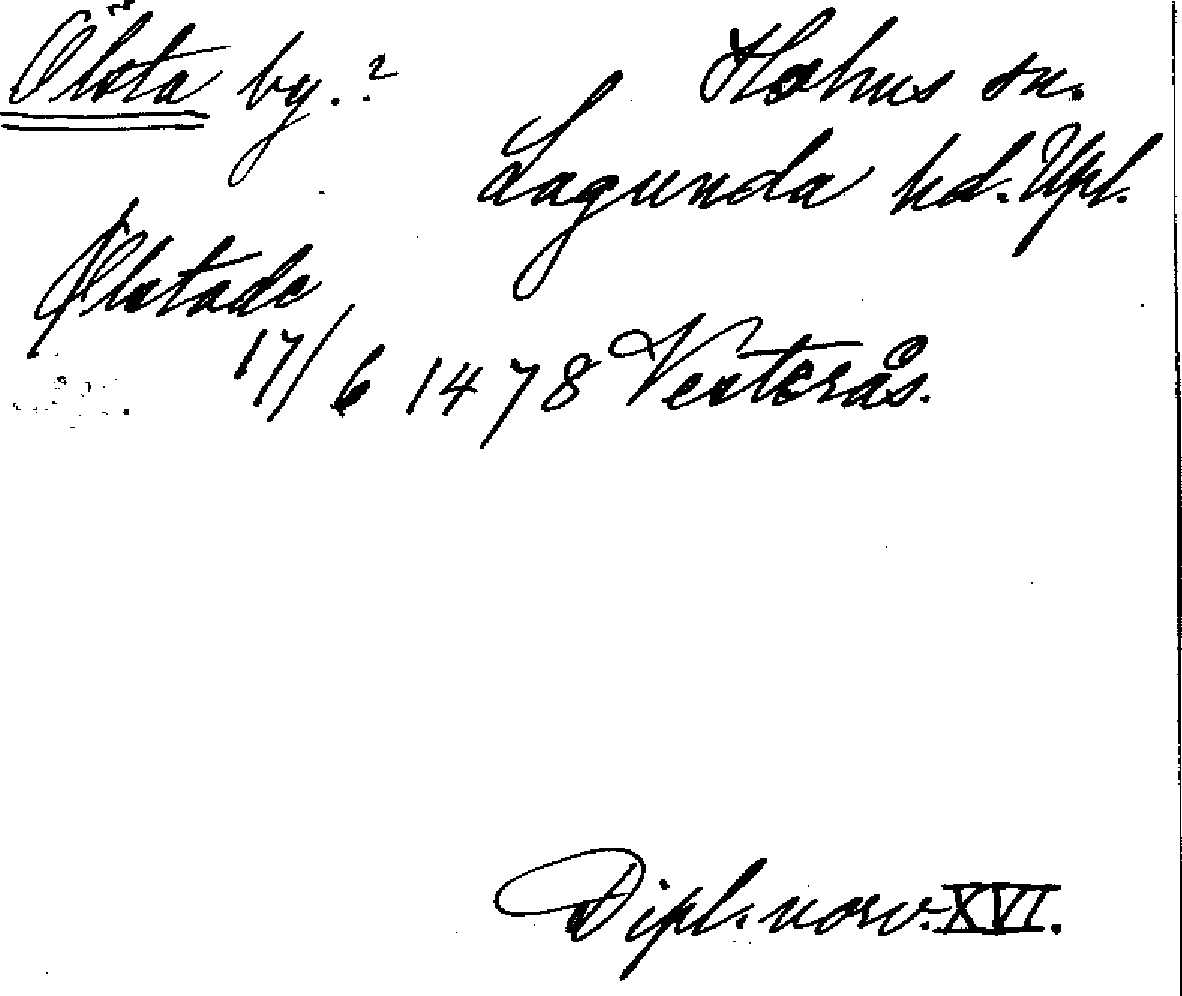 Ölsta by.? Hohus sn.
Lagunda hd. Upl.
Ølstade
17/6 1478 Vesterås.
Dipl. norv. XVI.